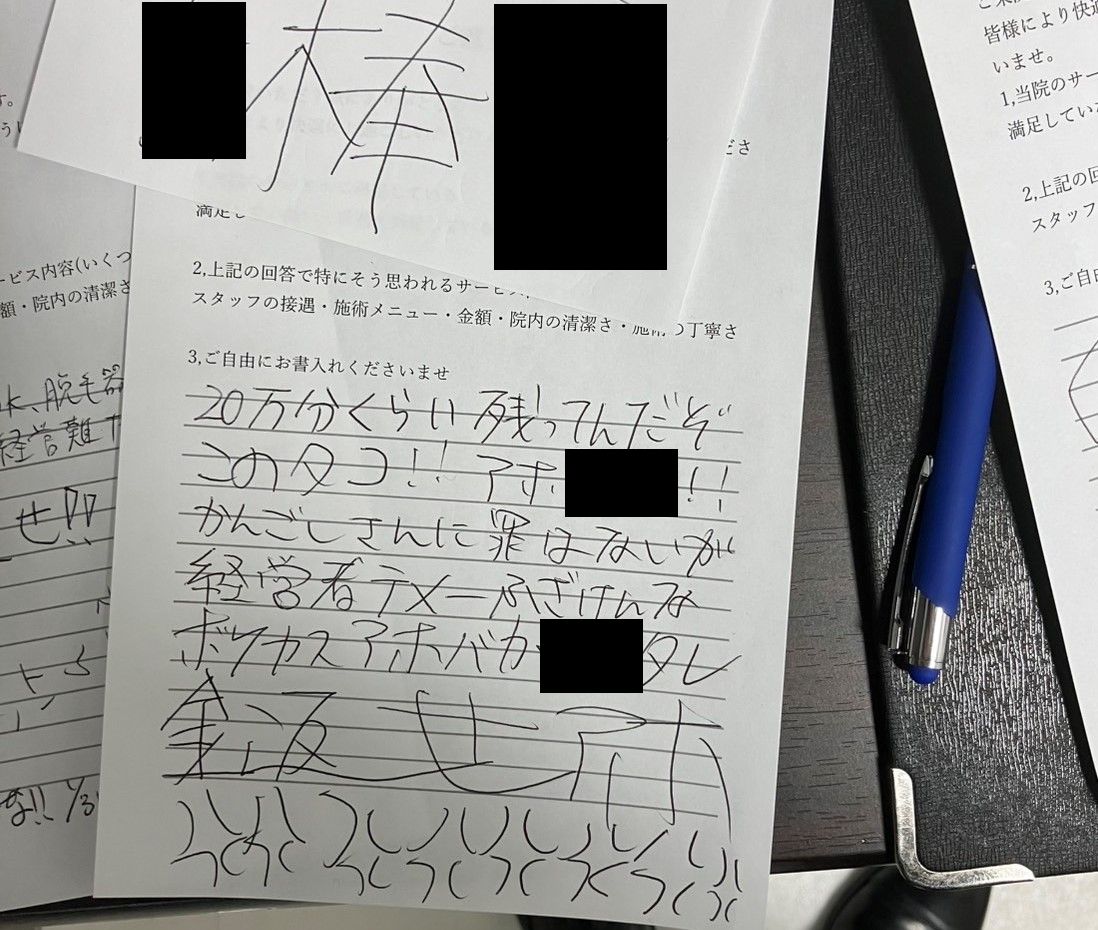 棒
ださ
満足し
2,上記の回答で特にそう思われるサービス
スタッフの接遇・施術メニュー・金額・院内の清潔さ・施術の丁寧さ
3,ご自由にお書入れくださいませ
20万分くらい残ってんだぞ
このタコ!! アホ!!
かんごしさんに罪はないが
経営者テメーふざけんな
ボケカスアホバカタレ
金返せ
ービス内容(いくつ
額・院内の清潔さ
脱毛器
経営難
せ!!
な!!
皆様により快適
いませ。
1,当院のサー
満足してい
2,上記の回
スタッフ
3,ご自由